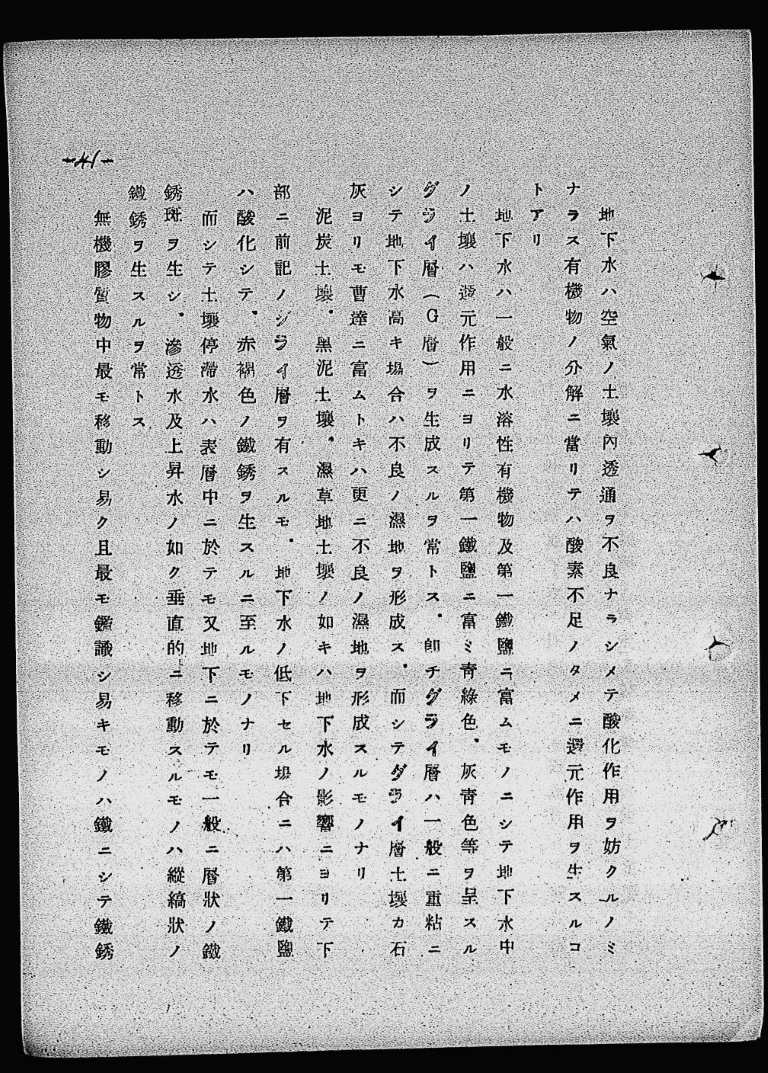 地下水ハ空氣ノ土壤內透通ヲ不良ナラシメテ酸化作用ヲ妨クルノミ
ナラス有機物ノ分解ニ當リテハ酸素不足ノタメニ還元作用ヲ生スルコ
トアリ
地下水ハ一般ニ水溶性有機物及第一鐵鹽ニ富ムモノニシテ地下水中
ノ土壤ハ還元作用ニヨリテ第一鐵鹽ニ富ミ靑綠色、灰靑色等ヲ呈スル
グライ層(G層)ヲ生成スルヲ常トス、卽チグライ層ハ一般ニ重粘ニ
シテ地下水高キ場合ハ不良ノ濕地ヲ形成ス、而シテグライ層土壤カ石
灰ヨリモ曹達ニ富ムトキハ更ニ不良ノ濕地ヲ形成スルモノナリ
泥炭土壤、黑泥土壤、濕草地土壤ノ如キハ地下水ノ影響ニヨリテ下
部ニ前記ノグライ層ヲ有スルモ、地下水ノ低下セル場合ニハ第一鐵鹽
ハ酸化シテ、赤褐色ノ鐵銹ヲ生スルニ至ルモノナリ
而シテ土壤停滯水ハ表層中ニ於テモ又地下ニ於テモ一般ニ層狀ノ鐵
銹斑ヲ生シ、滲透水及上昇水ノ如ク垂直的ニ移動スルモノハ縱縞狀ノ
鐵銹ヲ生スルヲ常トス
無機膠質物中最モ移動シ易ク且最モ鑑識シ易キモノハ鐵ニシテ鐵銹